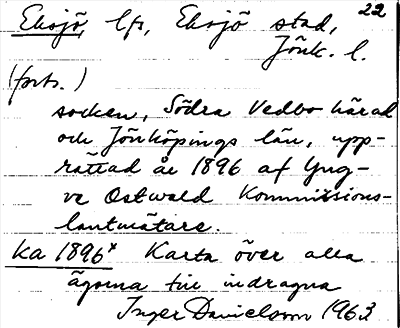 22
Eksjö, lfs, Eksjö stad,
Jönk. l.
(forts.)
socken, Södra Vedbo härad
och Jönköpings län, upp-
rättad år 1896 af Yng-
ve Ostwald Kommissions-
lantmätare.
ka 1896* Karta över alla
ägorna till indragna
Inger Danielsson 1963